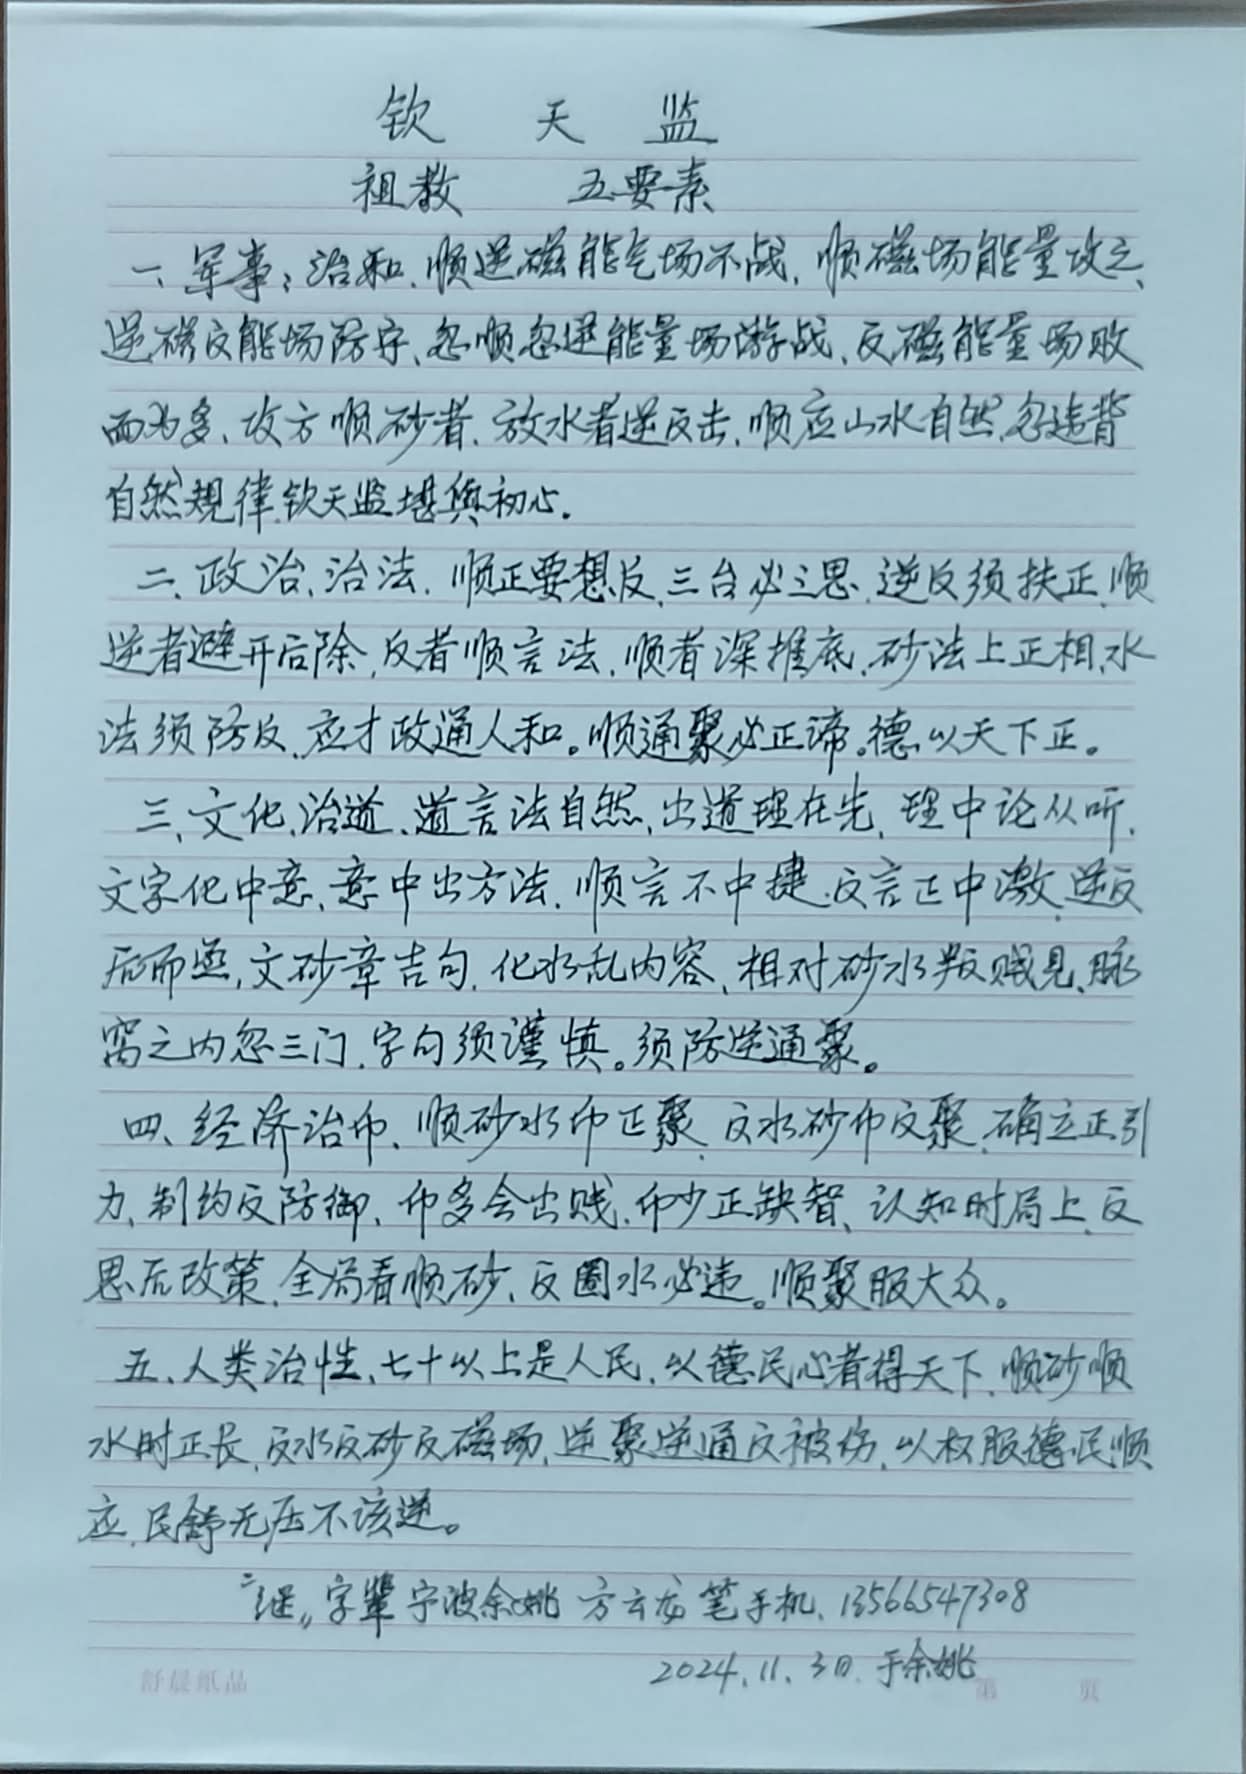 钦 天 监
祖教 五要素
一、军事：治和、顺逆磁能气场不战，顺磁场能量攻之、
逆磁反能场防守、忽顺忽逆能量场游战、反磁能量场败
而为多、攻方顺砂者、放水者逆反击，顺应山水自然，忽违背
自然规律，钦天监堪舆初心．
二、政治、治法．顺正要想反、三台必三思、逆反须扶正、顺
逆者避开后除，反者顺言法，顺者深推底，砂法上正相，水
法须防反、应才政通人和。顺通聚必正谛。德以天下正。
三、文化、治道、道言法自然、出道理在先，理中论从听，
文字化中意、意中出方法．顺言不中捷．反言正中激，逆反
后而 ，文砂章吉句，化水乱内容，相对砂水叛贱见、脉
窝之内忽三门，字句须谨慎。须防逆通聚。
四、经济治币、顺砂水币正聚，反水砂币反聚，确立正引
力、制约反防御、币多会出贱，币少正缺智、认知时局上，反
思后改策，全局看顺砂、反圈水必违。顺聚服大众。
五、人类治性、七十以上是人民，以德民心者得天下，顺砂顺
水时正长，反水反砂反磁场，逆聚逆通反被伤，以权服德民顺
应，民舒无压不该逆。
"继"字辈 宁波余姚 方云龙 笔 手机、13566547308
2024.11.3日．于余姚
舒晨纸品 第 页